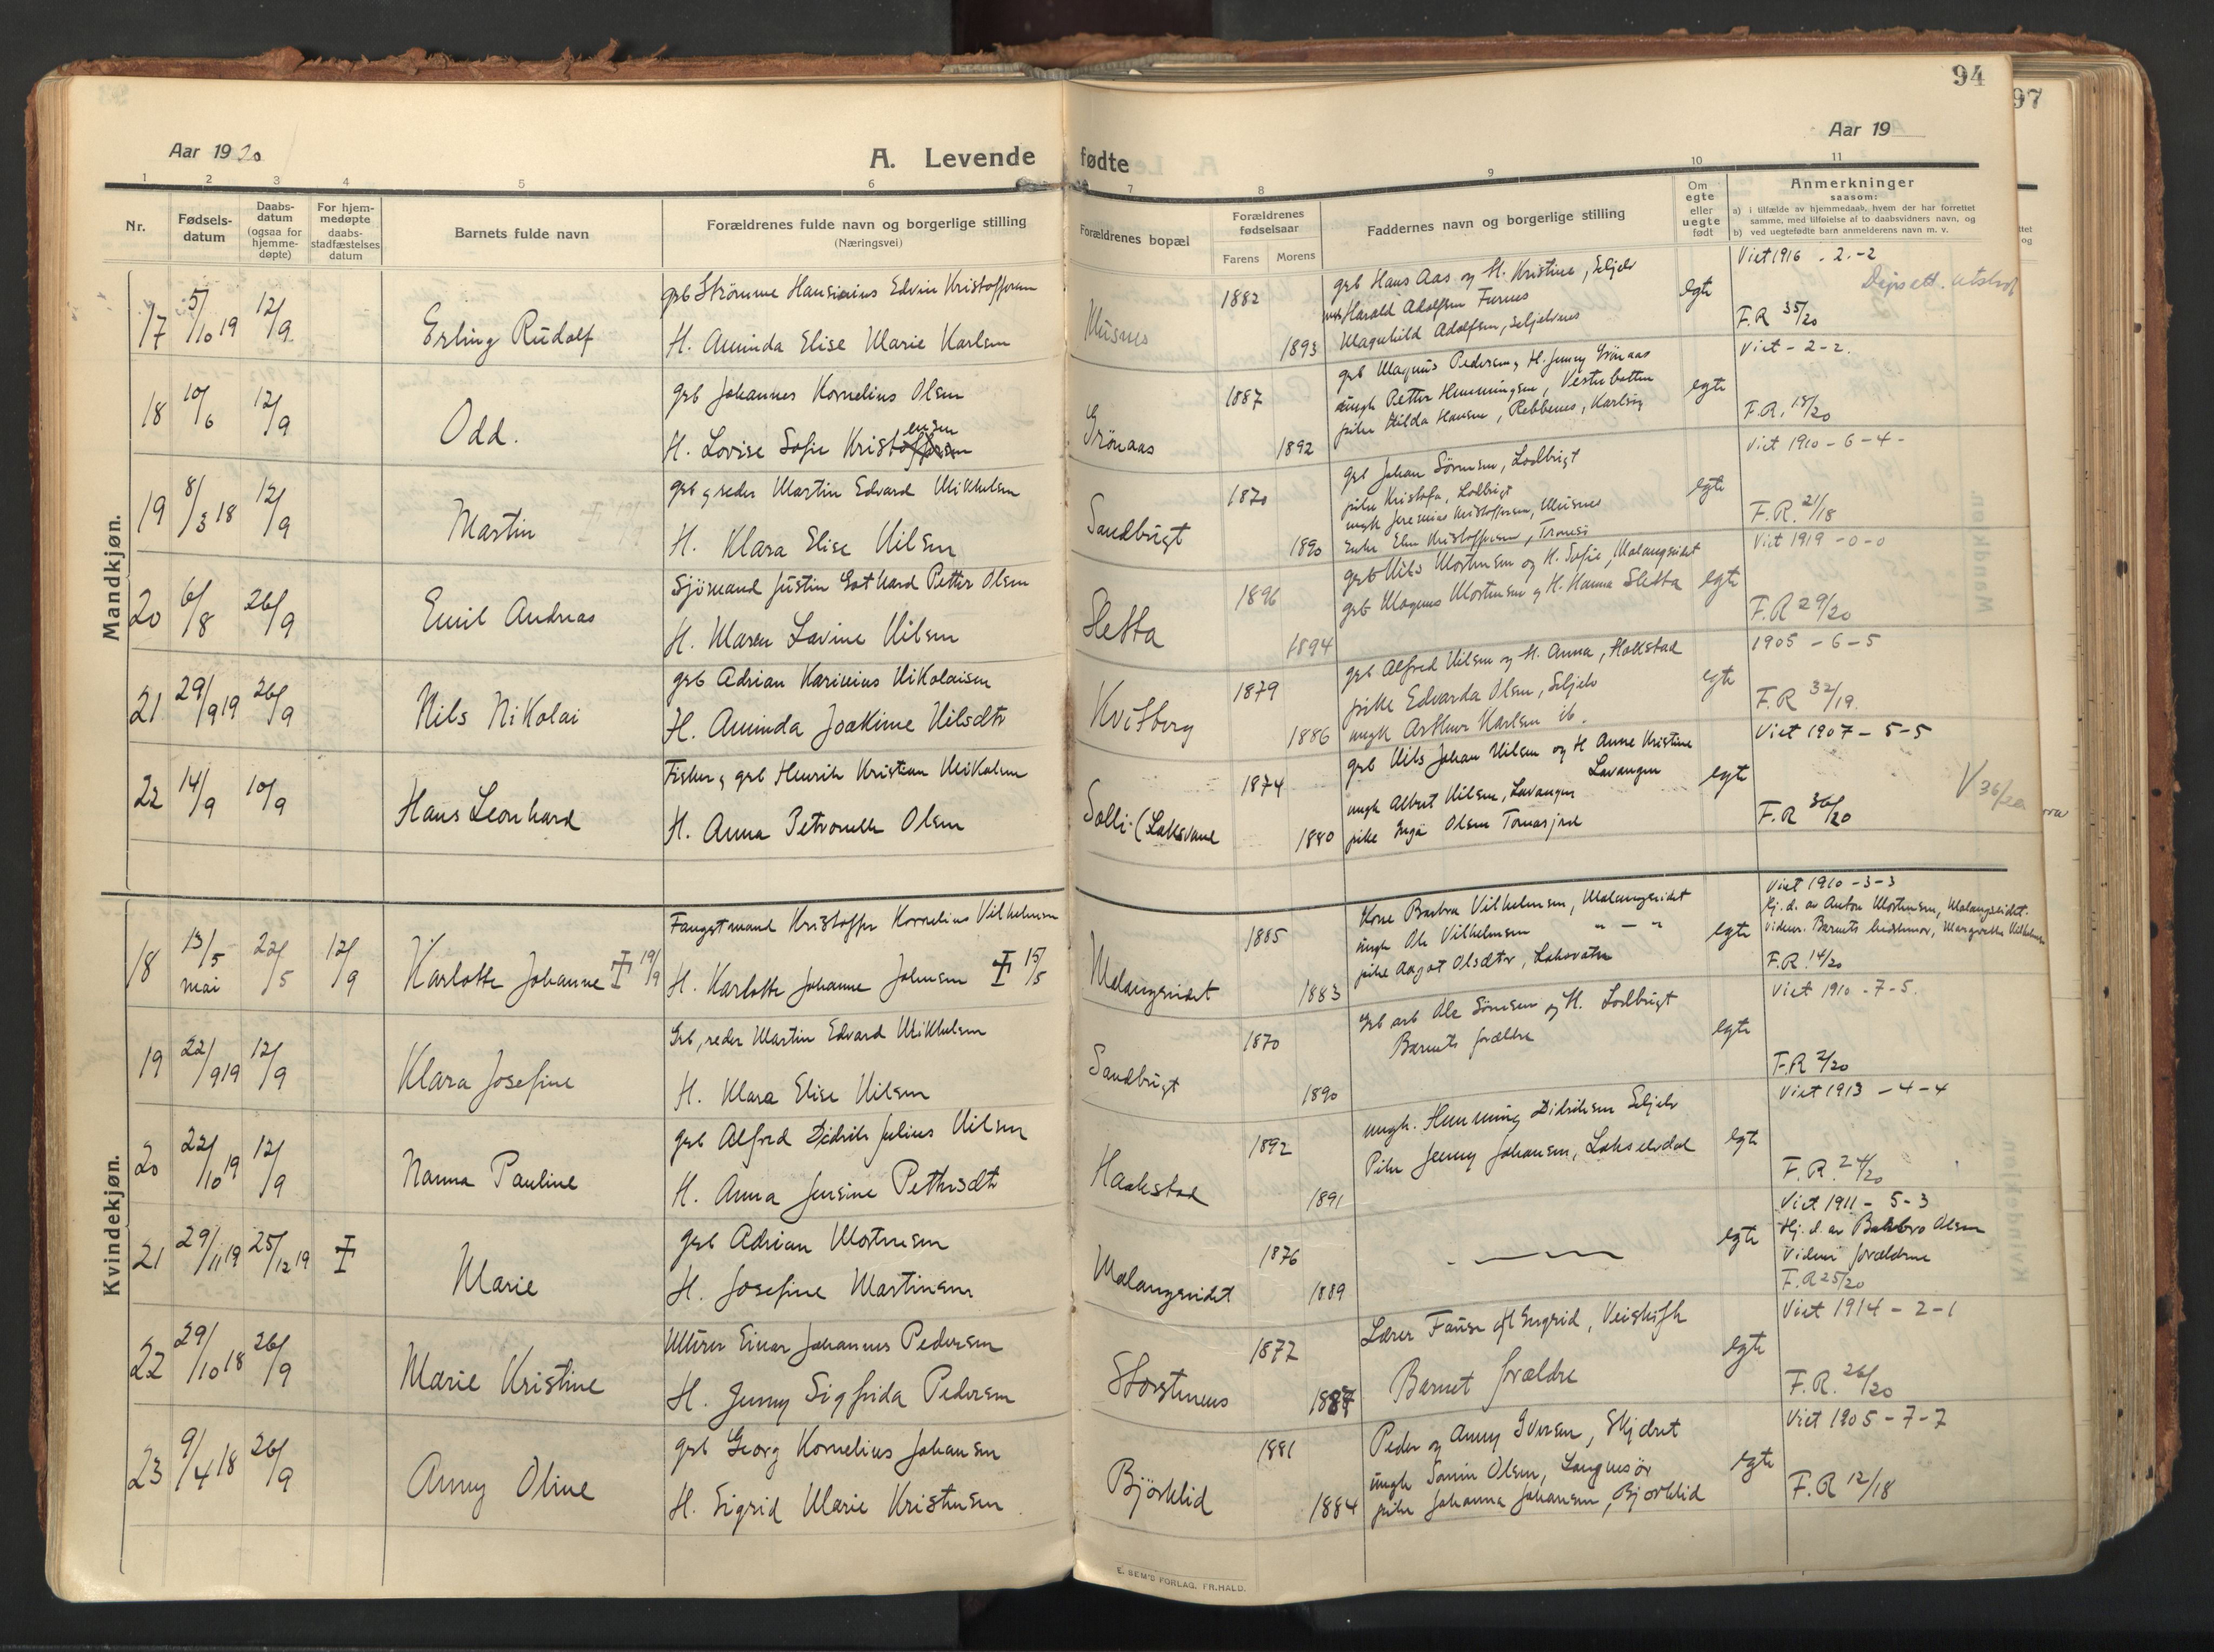 94
97
Aar 1920
A. Levende fødte
Aar 19
1 2 3 4 5 6 7 8 9 10 11
Nr.
Fødsels-
datum
Daabs-
datum
(ogsaa for
hjemme-
døpte)
For hjem-
medøpte
daabs-
stadfæstelses
datum
Barnets fulde navn
Forældrenes fulde navn og borgerlige stilling
(Næringsvei)
Forældrenes bopæl
Forældrenes
fødselsaar
Farens Morens
Faddernes navn og borgerlige stilling
Om
egte
eller
uegte
født
Anmerkninger
saasom:
a) i tilfælde av hjemmedaab, hvem der har forrettet
samme, med tilføielse af to daabsvidners navn, og
b) ved uegtefødte barn anmelderens navn m. v.
Mandkjøn.
17 5/10 19 12/9 Erling Rudolf
grb Strømme Hansinius Edvin Kristoffersen
H. Aminda Elise Marie Karlsen
Musnes 1882 1893
grb Hans Aas og H. Kristine, Seljelv
Harald Adolfsen Furnes
Magnhild Adolfsen, Seljelvnes
egte
Viet 1916 - 2 - 2
F.R 35/20
18 10/6 12/9 Odd.
grb Johannes Kornelius Olsen
H. Lovise Sofie Kristensen
Grönaas 1887 1892
grb Magnus Pedersen og H. Jenny Grönaas
ungk Petter Henningsen, Vesterbotten
pike Hilda Hansen, Rebbenes, Karlsöy
egte
Viet - 2 - 2.
F.R. 18/20
19 8/3 18 12/9 Martin
grb og reder Martin Edvard Mikkelsen
H. Klara Elise Nilsen
Sandbugt 1870 1890
grb Johan Sörensen, Lodbugt
pike Kristofa, Lodbugt
ungk Jeremias Kristoffersen, Musnes
Enke Elen Kristoffersen, Tromsö
egte
Viet 1910 - 6 - 4 -
F.R. 21/18
20 6/8 26/9 Emil Andreas
Sjömand Justin Gothard Petter Olsen
H. Maren Lavine Nilsen
Sletta 1896 1894
grb Nils Mortensen og H. Sofie, Malangseidet
grb Magnus Mortensen og H. Hanna Sletta
egte
Viet 1919 - 0 - 0
F.R 29/20
21 29/9 19 26/9 Nils Nikolai
grb Adrian Karinius Nikolaisen
H. Aminda Joakime Nilsdtr
Kvitberg 1879 1886
grb Alfred Nilsen og H. Anna, Hakstad
pike Edvarda Olsen, Seljelv
ungk Arthur Karlsen ib.
egte
1905 - 6 - 5
F.R 32/19.
22 14/9 10/9 Hans Leonhard
Fisker og grb Henrik Kristian Nikolaisen
H. Anna Petronelle Olsen
Solli (Laksvand 1874 1880
grb Nils Johan Nilsen og H Anne Kristine
Lavangen
ungk Albert Nilsen, Lavangen
pike Inga Olsen Tomasjord
egte
Viet 1907 - 5 - 5
F.R 36/20
V 36/20
Kvindekjøn.
18 13/5 mai 22/5 12/9 Karlotte Johanne 19/9
Fangstmand Kristoffer Kornelius Vilhelmsen
H. Karlotte Johanne Johnsen 15/5
Malangseidet 1885 1883
Kone Barbra Vilhelmsen, Malangseidet
ungk Ole Vilhelmsen " - "
pike Aagot Olsdtr, Laksvatn
egte
Viet 1910 - 3 - 3
Hj. d. av Anton Mortensen, Malangseidet.
vidner. Barnets bedstemor, Margrethe Vilhelmsen
F.R. 14/20
19 22/9 19 12/9 Klara Josefine
Grb, reder Martin Edvard Mikkelsen
H. Klara Elise Nilsen
Sandbugt 1870 1890
Grb arb Ole Sörensen og H. Lodbugt
Barnets forældre
egte
Viet 1910 - 7 - 5.
F.R 2/20
20 22/10 19 12/9 Nanna Pauline
grb Alfred Didrik Julius Nilsen
H. Anna Jensine Pettersdtr
Haakstad 1892 1891
ungk. Henning Didriksen Seljelv
Pike Jenny Johansen, Lakselvdal
egte
Viet 1913 - 4 - 4
F.R. 24/20
21 29/11 19 25/12 19 Marie
grb Adrian Mortensen
H. Josefine Martinsen
Malangseidet 1876 1889
egte
Viet 1911 - 5 - 3
Hj. d. av Olsen
Vidner forældrene
F.R 25/20
22 29/10 18 26/9 Marie Kristine
Murer Einar Johannes Pedersen
H. Jenny Sigfrida Pedersen
Storstennes 1877 1887
Lærer Fause og H Ingrid,
Barnet forældre
egte
Viet 1914 - 2 - 1
F.R. 26/20
23 9/4 18 26/9 Anny Oline
grb Georg Kornelius Johansen
H. Sigrid Marie Kristensen
Björklid 1881 1884
Peder og Anny Iversen,
ungk Olsen, Langnesör
pike Johanna Johansen, Bjorklid
egte
Viet 1905 - 7 - 7
F.R 12/18
E. SEM'S FORLAG, FR.HALD.